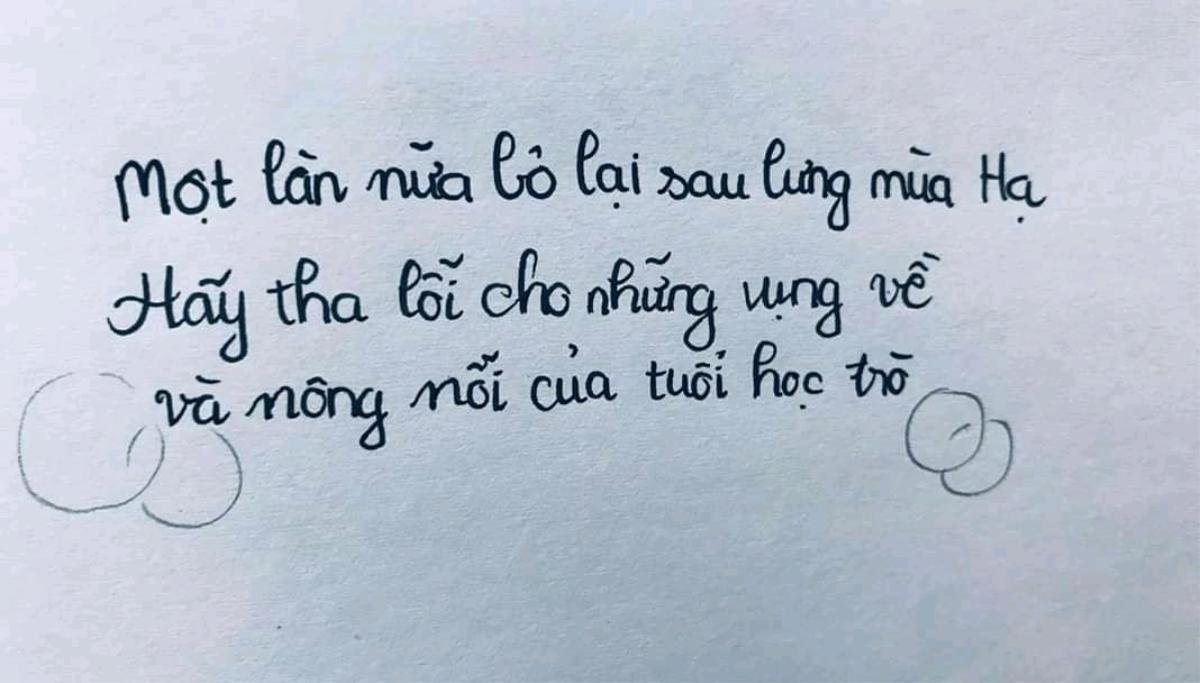 Một lần nữa bỏ lại sau lưng mùa Hạ
Hãy tha lỗi cho những vụng về
và nông nổi của tuổi học trò